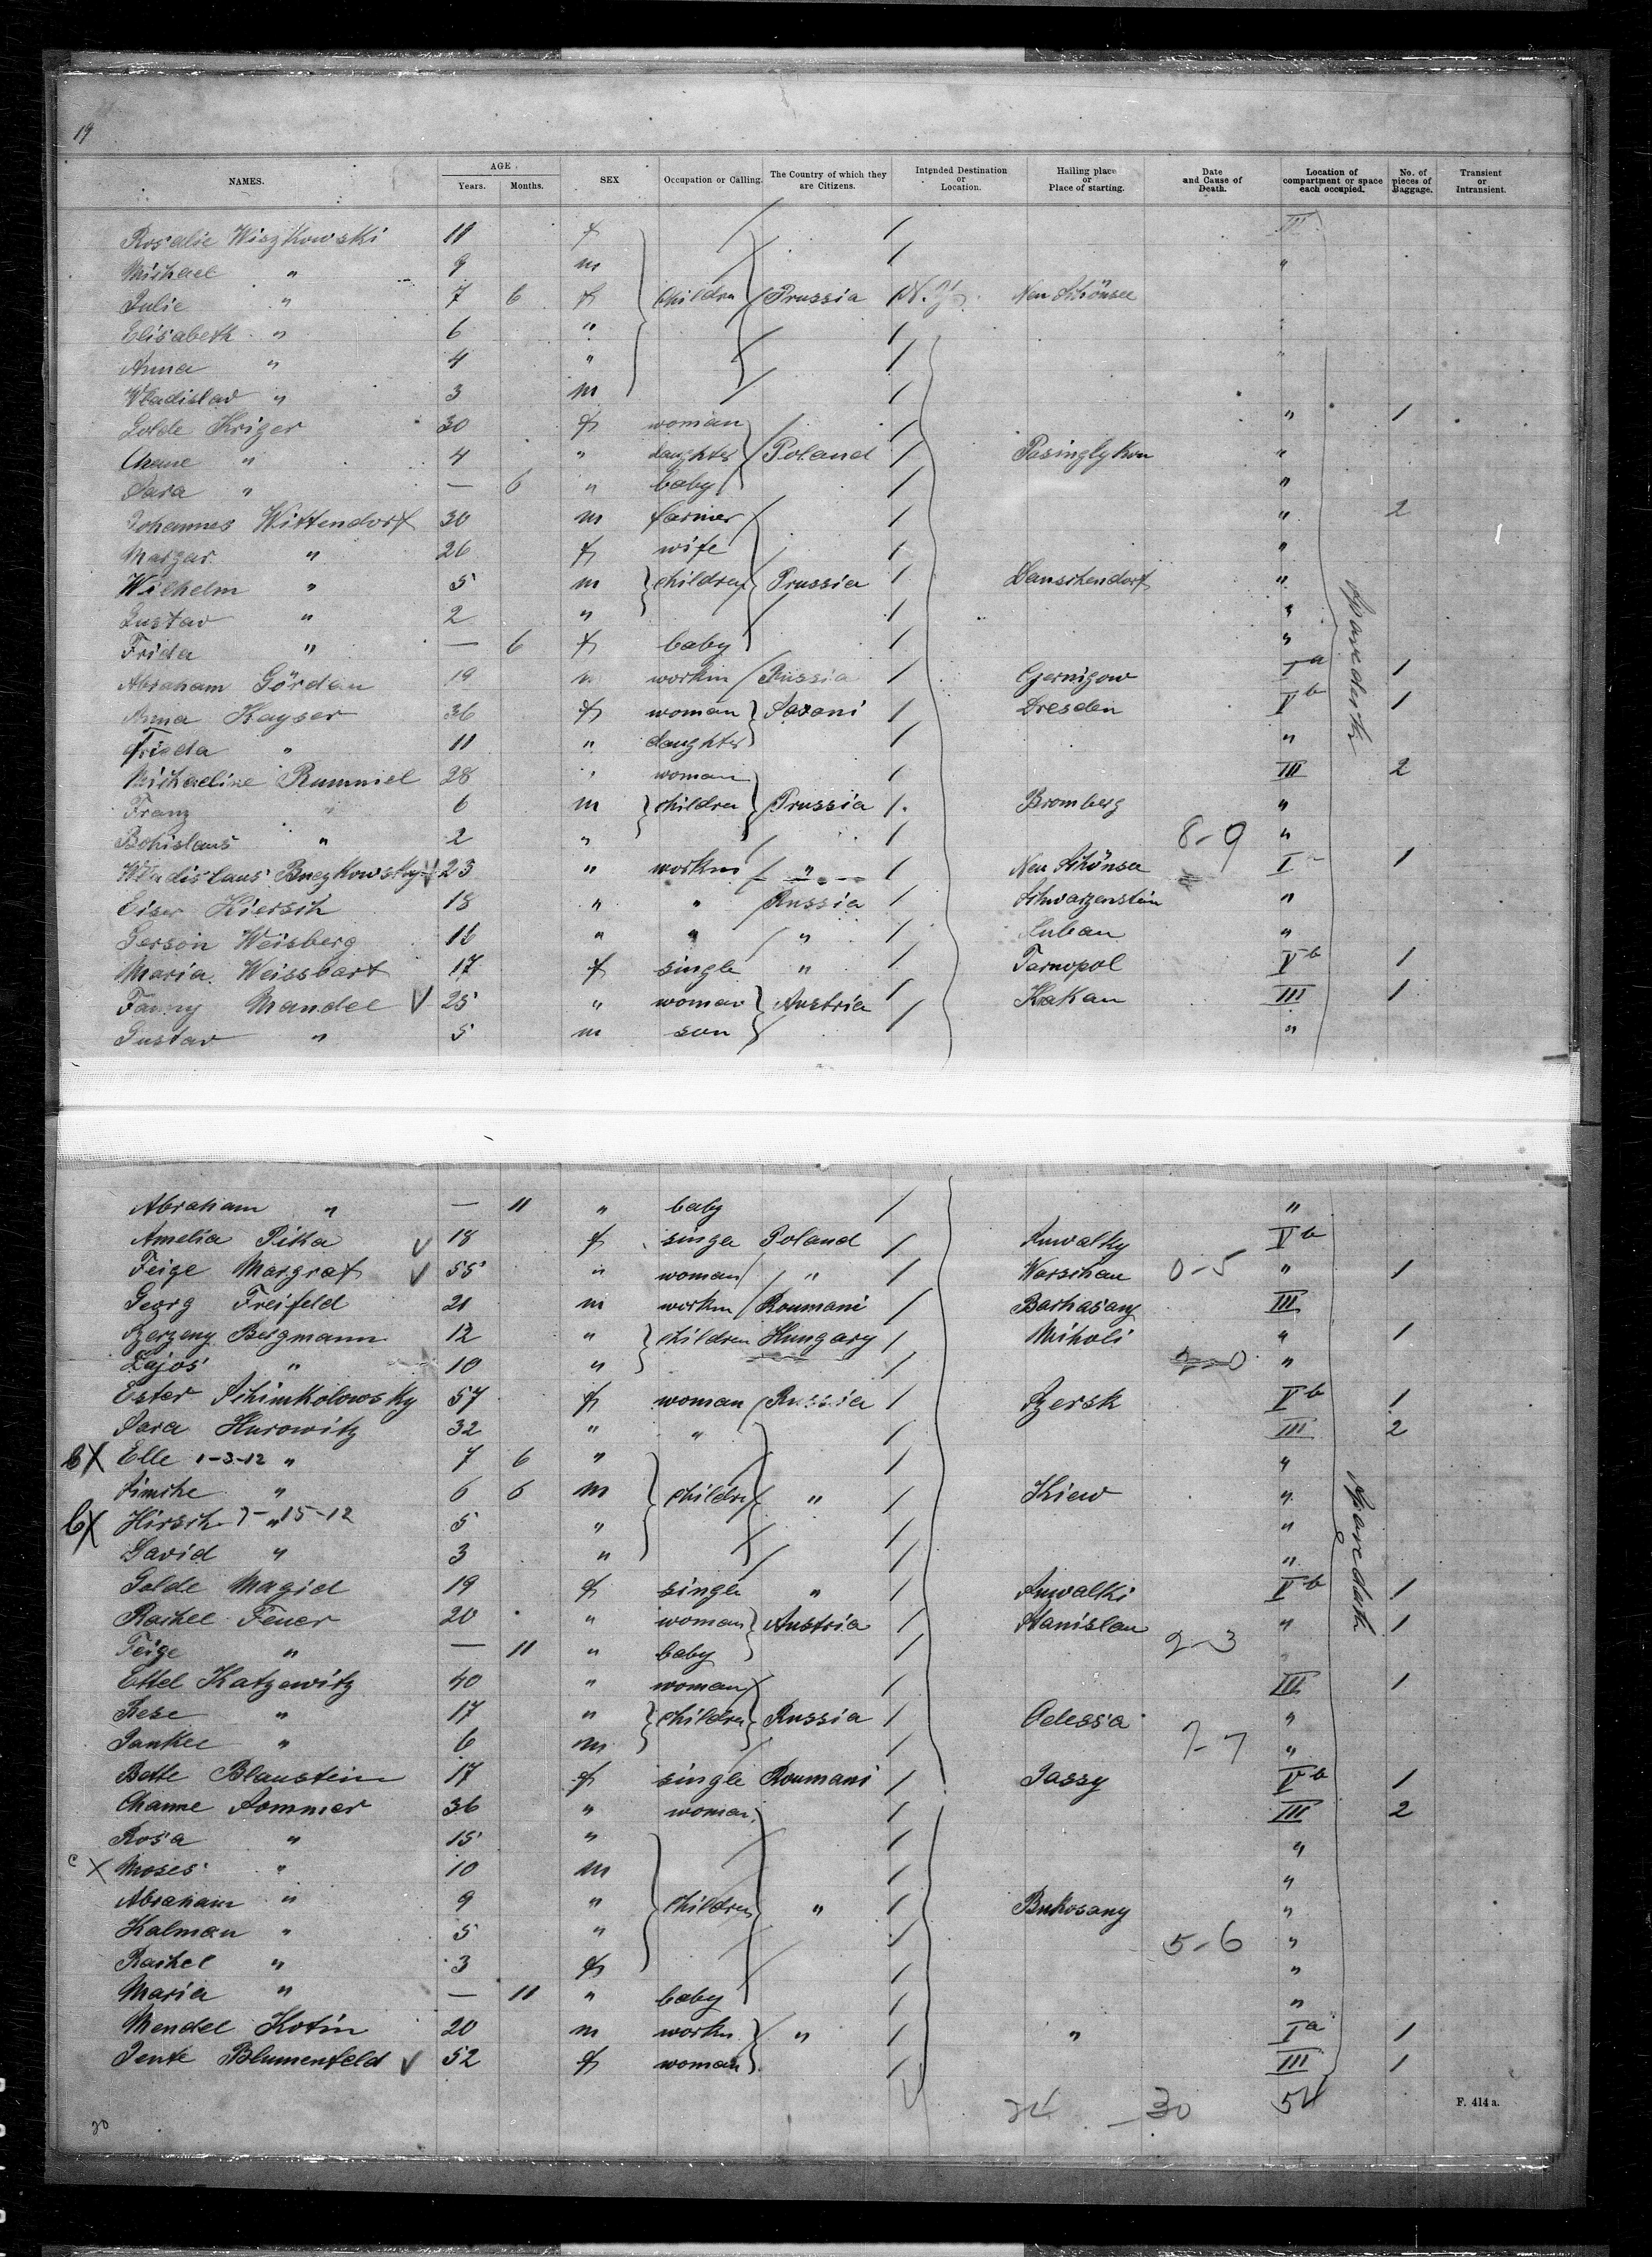 19
NAMES. AGE. Years. Months. SEX Occupation or Calling. The Country of which they are Citizens. Intended Destination or Location. Hailing place or Place of starting. Date and Cause of Death. Location of compartment or space each occupied. No. of pieces of Baggage. Transient or Intransient.
Rosalie Wiszkowski 11 f / / III
Michael " 9 m / "
Julie " 7 6 f children Prussia / N.Y. Neu Schönsee
Elisabeth " 6 " /
Anna " 4 " / "
Wladislav " 3 m /
Golde Kriger 30 f woman / " 1
Chane " 4 " daughter Poland / "
Sara " — 6 " baby / "
Johannes Wittendorf 30 m farmer / " 2
Margar. " 26 f wife / "
Wilhelm " 5 m children Prussia / "
Gustav " 2 " / "
Frida " — 6 f baby / "
Abraham Gördan 19 m workm Russia / Czernigow I a 1
Anna Kayser 36 f woman Saxoni / Dresden V b 1
Frieda " 11 " daughter / "
Michaeline Rummiel 28 " woman / III 2
Franz " 6 m children Prussia / Bromberg "
Bohislaus " 2 " / 8-9 "
Wladislaus 23 " workm " / Neu Schönsee I 1
Eiser Kiersch 18 " " Russia / Schwarzenstein "
Gerson Weisberg 16 " " " / Luban "
Maria Weissbart 17 f single " / Tarnopol V b 1
Fanny Mandel V 25 " woman Austria / Krakau III 1
Gustav " 5 m son / "
Abraham " — 11 " baby / "
Amelia Pika V 18 f singe Poland / Suwalky V b
Feige Margraf V 55 " woman " / Warschau 0-5 " 1
Georg Freifeld 21 m workm Roumani / III
Bergmann 12 " children Hungary / Miholi " 1
Lajos " 10 " / "
Ester Schimkolowsky 57 f woman Russia / Szersk V b 1
Sara Hurowitz 32 " " / III 2
X Elle 1-3-12 " 7 6 " / "
Simche " 6 6 m children " / Kiew "
X Hirsch 7-15-12 " 5 " / "
David " 3 " / "
Golde Magid 19 f single " / Suwalki V b 1
Rachel Feuer 20 " woman Austria / Stanislau " 1
Feige " — 11 " baby / 2-3
Ettel Katzewitz 40 " woman / III 1
Rese " 17 " children Russia / Odessa "
Jankel " 6 m / 7-7 "
Bette Blaustein 17 f single Roumani / Jassy V b 1
Channe Sommer 36 " woman / III 2
Rosa " 15 " / "
c X Moses " 10 m / "
Abraham " 9 " children " / Bukosany "
Kalman " 5 " / 5-6 "
Rachel " 3 f / "
Maria " — 11 " baby / "
Mendel Kotin 20 m workm " / " I a 1
Jente Blumenfeld V 52 f woman / III 1
24 — 30 54
F. 414 a.
20